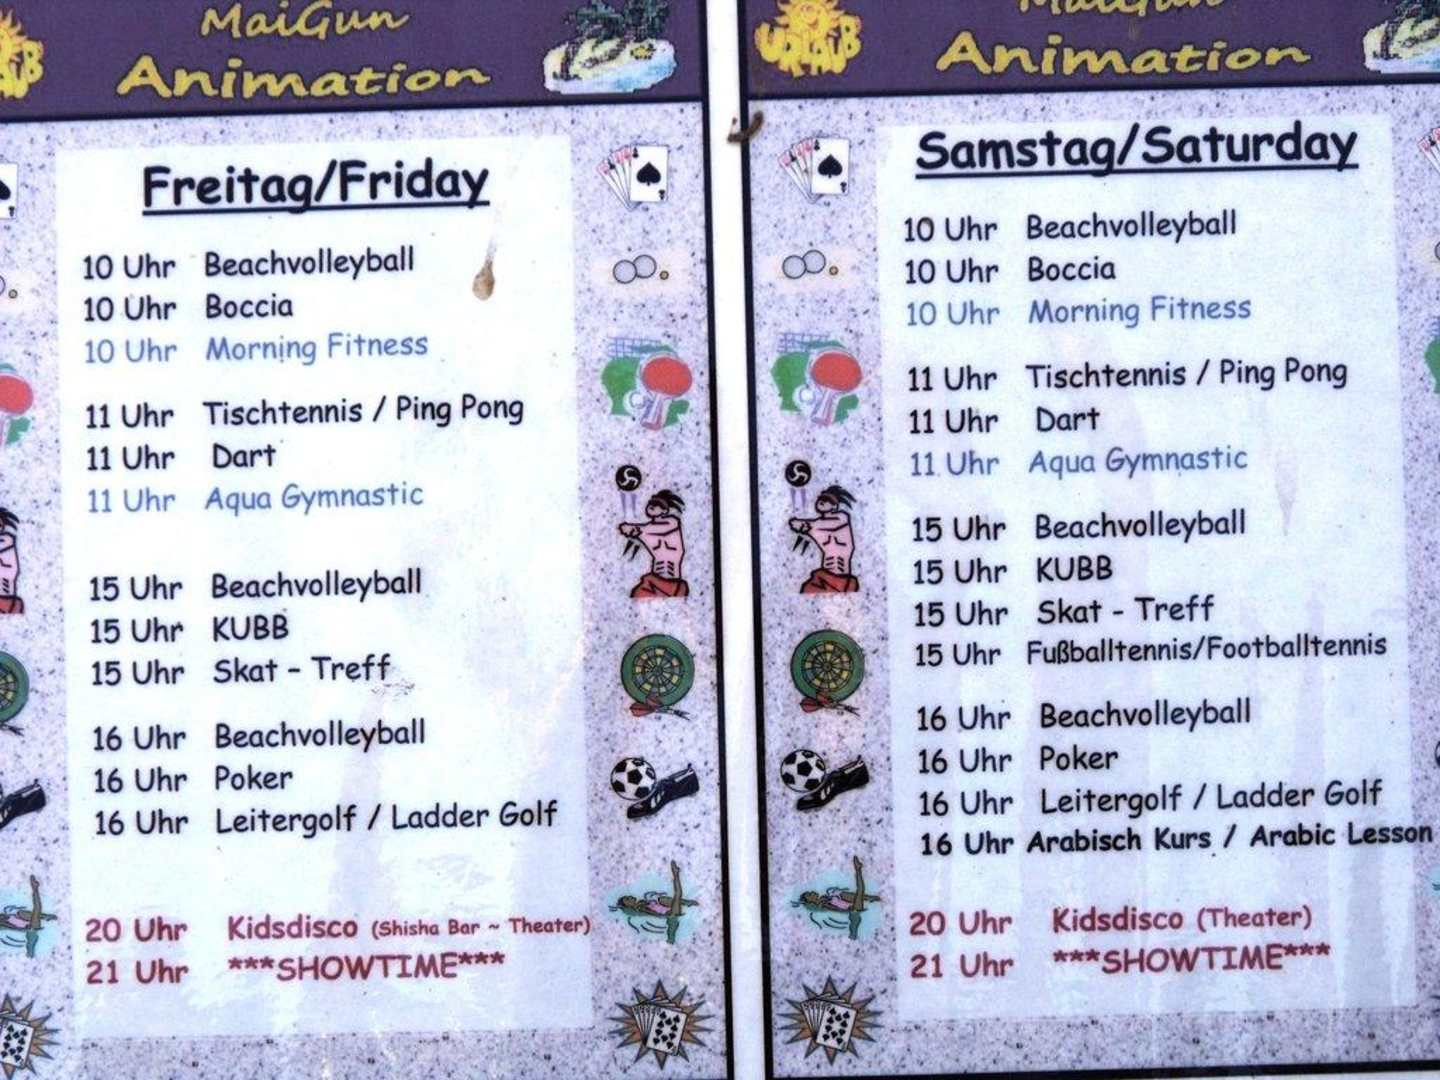 MaiGun
Animation
Freitag/Friday
10 Uhr Beachvolleyball
10 Uhr Boccia
10 Uhr Morning Fitness
11 Uhr Tischtennis / Ping Pong
11 Uhr Dart
11 Uhr Aqua Gymnastic
15 Uhr Beachvolleyball
15 Uhr KUBB
15 Uhr Skat - Treff
16 Uhr Beachvolleyball
16 Uhr Poker
16 Uhr Leitergolf / Ladder Golf
20 Uhr Kidsdisco (Shisha Bar ~ Theater)
21 Uhr ***SHOWTIME***
URLAUB
MaiGun
Animation
Samstag/Saturday
10 Uhr Beachvolleyball
10 Uhr Boccia
10 Uhr Morning Fitness
11 Uhr Tischtennis / Ping Pong
11 Uhr Dart
11 Uhr Aqua Gymnastic
15 Uhr Beachvolleyball
15 Uhr KUBB
15 Uhr Skat - Treff
15 Uhr Fußballtennis/Footballtennis
16 Uhr Beachvolleyball
16 Uhr Poker
16 Uhr Leitergolf / Ladder Golf
16 Uhr Arabisch Kurs / Arabic Lesson
20 Uhr Kidsdisco (Theater)
21 Uhr ***SHOWTIME***